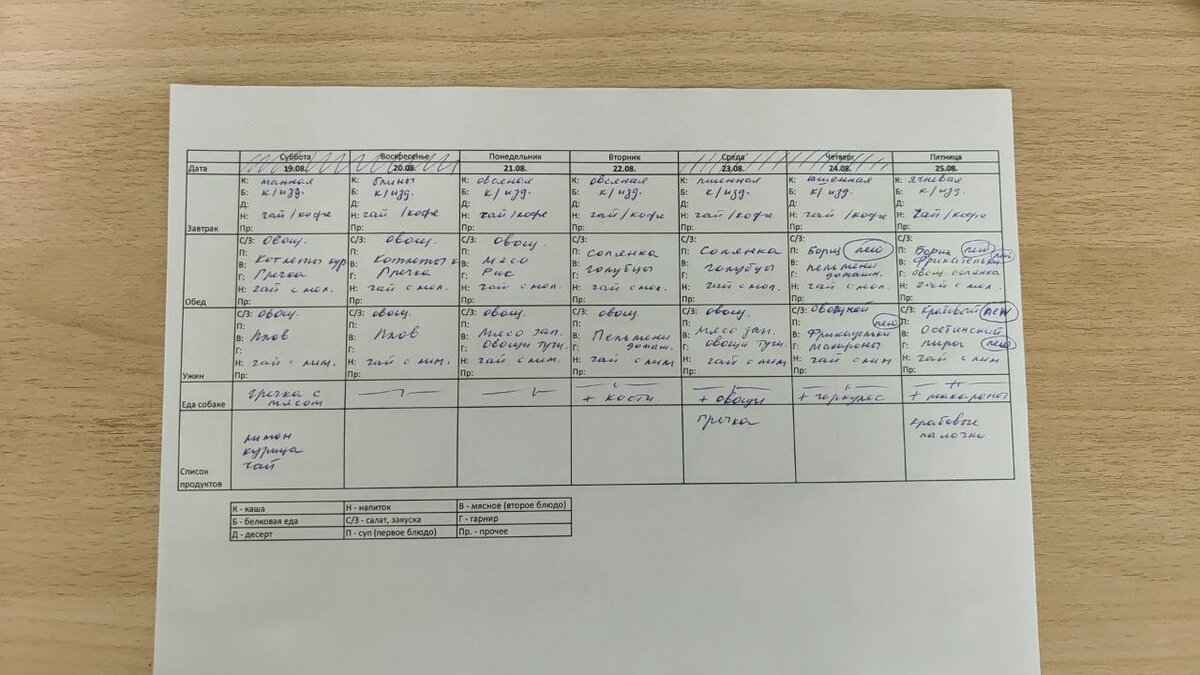 Суббота Воскресенье Понедельник Вторник Среда Четверг Пятница
Дата 19.08. 20.08. 21.08. 22.08. 23.08. 24.08. 25.08.
К: манная К: блины К: овсяная К: овсяная К: пшенная К: пшенная К: ячневая
Б: к/изд. Б: к/изд. Б: к/изд. Б: к/изд. Б: к/изд. Б: к/изд. Б: к/изд.
Д: Д: Д: Д: Д: Д: Д:
Н: чай/кофе Н: чай/кофе Н: чай/кофе Н: чай/кофе Н: чай/кофе Н: чай/кофе Н: чай/кофе
Завтрак Пр: Пр: Пр: Пр: Пр: Пр: Пр:
С/З: овощ. С/З: овощ. С/З: овощ. С/З: С/З: С/З: С/З:
П: Котлеты кур. П: Котлеты к П: мясо П: Солянка П: Солянка П: Борщ new П: Борщ new
В: В: В: В: голубцы В: голубцы В: пельмени В: new
Г: Гречка Г: Гречка Г: Рис Г: Г: Г: домашн. Г: овощ. солянка
Н: чай с мол. Н: чай с мол. Н: чай с мол. Н: чай с мол. Н: чай с мол. Н: чай с мол. Н: чай с мол.
Обед Пр: Пр: Пр: Пр: Пр: Пр: Пр:
С/З: овощ. С/З: овощ. С/З: овощ. С/З: овощ. С/З: овощ. С/З: овощной С/З: Крабовый new
П: П: П: П: П: П: new П: Осетинский
В: Плов В: Плов В: Мясо зап. В: Пельмени В: мясо зап. В: Фрикадельки В:
Г: Г: Г: Овощи туш. Г: домаш. Г: овощи туш. Г: Макароны Г: пирог new
Н: чай с лим. Н: чай с лим. Н: чай с лим. Н: чай с лим Н: чай с лим Н: чай с лим Н: чай с лим
Ужин Пр: Пр: Пр: Пр: Пр: Пр: Пр:
Еда собаке гречка с мясом —"— —"— —"— + кости. —"— + овощи —"— + геркулес —"— + макароны
Список продуктов
лимон
курица
чай
гречка
крабовые
палочки
К - каша Н - напиток В - мясное (второе блюдо)
Б - белковая еда С/З - салат, закуска Г - гарнир
Д - десерт П - суп (первое блюдо) Пр. - прочее